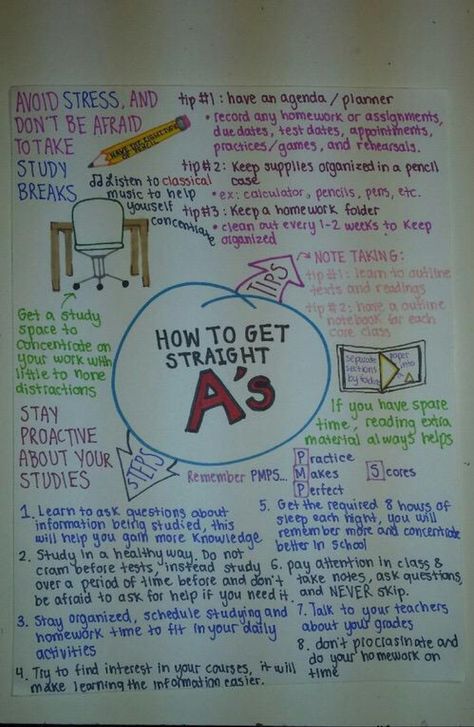 AVOID STRESS, AND
DON'T BE AFRAID
TO TAKE
STUDY
BREAKS
tip #1: have an agenda / planner
• record any homework or assignments,
due dates, test dates, appointments,
practices/games, and rehearsals.
tip #2: Keep supplies organized in a pencil
case
• ex: calculator, pencils, pens, etc.
tip #3: Keep a homework folder
• clean out every 1-2 weeks to keep
organized
HAVE THE RIGHT TYPE
OF PENCIL
Listen to classical
music to help
youself
concentrate
TIPS
NOTE TAKING:
tip #1: learn to outline
texts and readings
tip #2: have a outline
notebook for each
core class
separate
sections
by
paper
into
Get a study
space to
concentrate on
your work with
little to none
distractions
HOW TO GET
STRAIGHT
A's
If you have spare
time, reading extra
material always helps
STAY
PROACTIVE
ABOUT YOUR
STUDIES
STEPS
Remember PMPS...
Practice
Makes
Perfect
Scores
1. Learn to ask questions about
information being studied, this
will help you gain more knowledge
2. Study in a healthy way. Do not
cram before tests, instead study
over a period of time before and don't
be afraid to ask for help if you need it.
3. Stay organized, schedule studying and
homework time to fit in your daily
activities
4. Try to find interest in your courses, it will
make learning the information easier.
5. Get the required 8 hours of
sleep each night, you will
remember more and concentrate
better in school
6. pay attention in class &
take notes, ask questions,
and NEVER skip.
7. Talk to your teachers
about your grades
8. don't procrasinate and
do your homework on
time